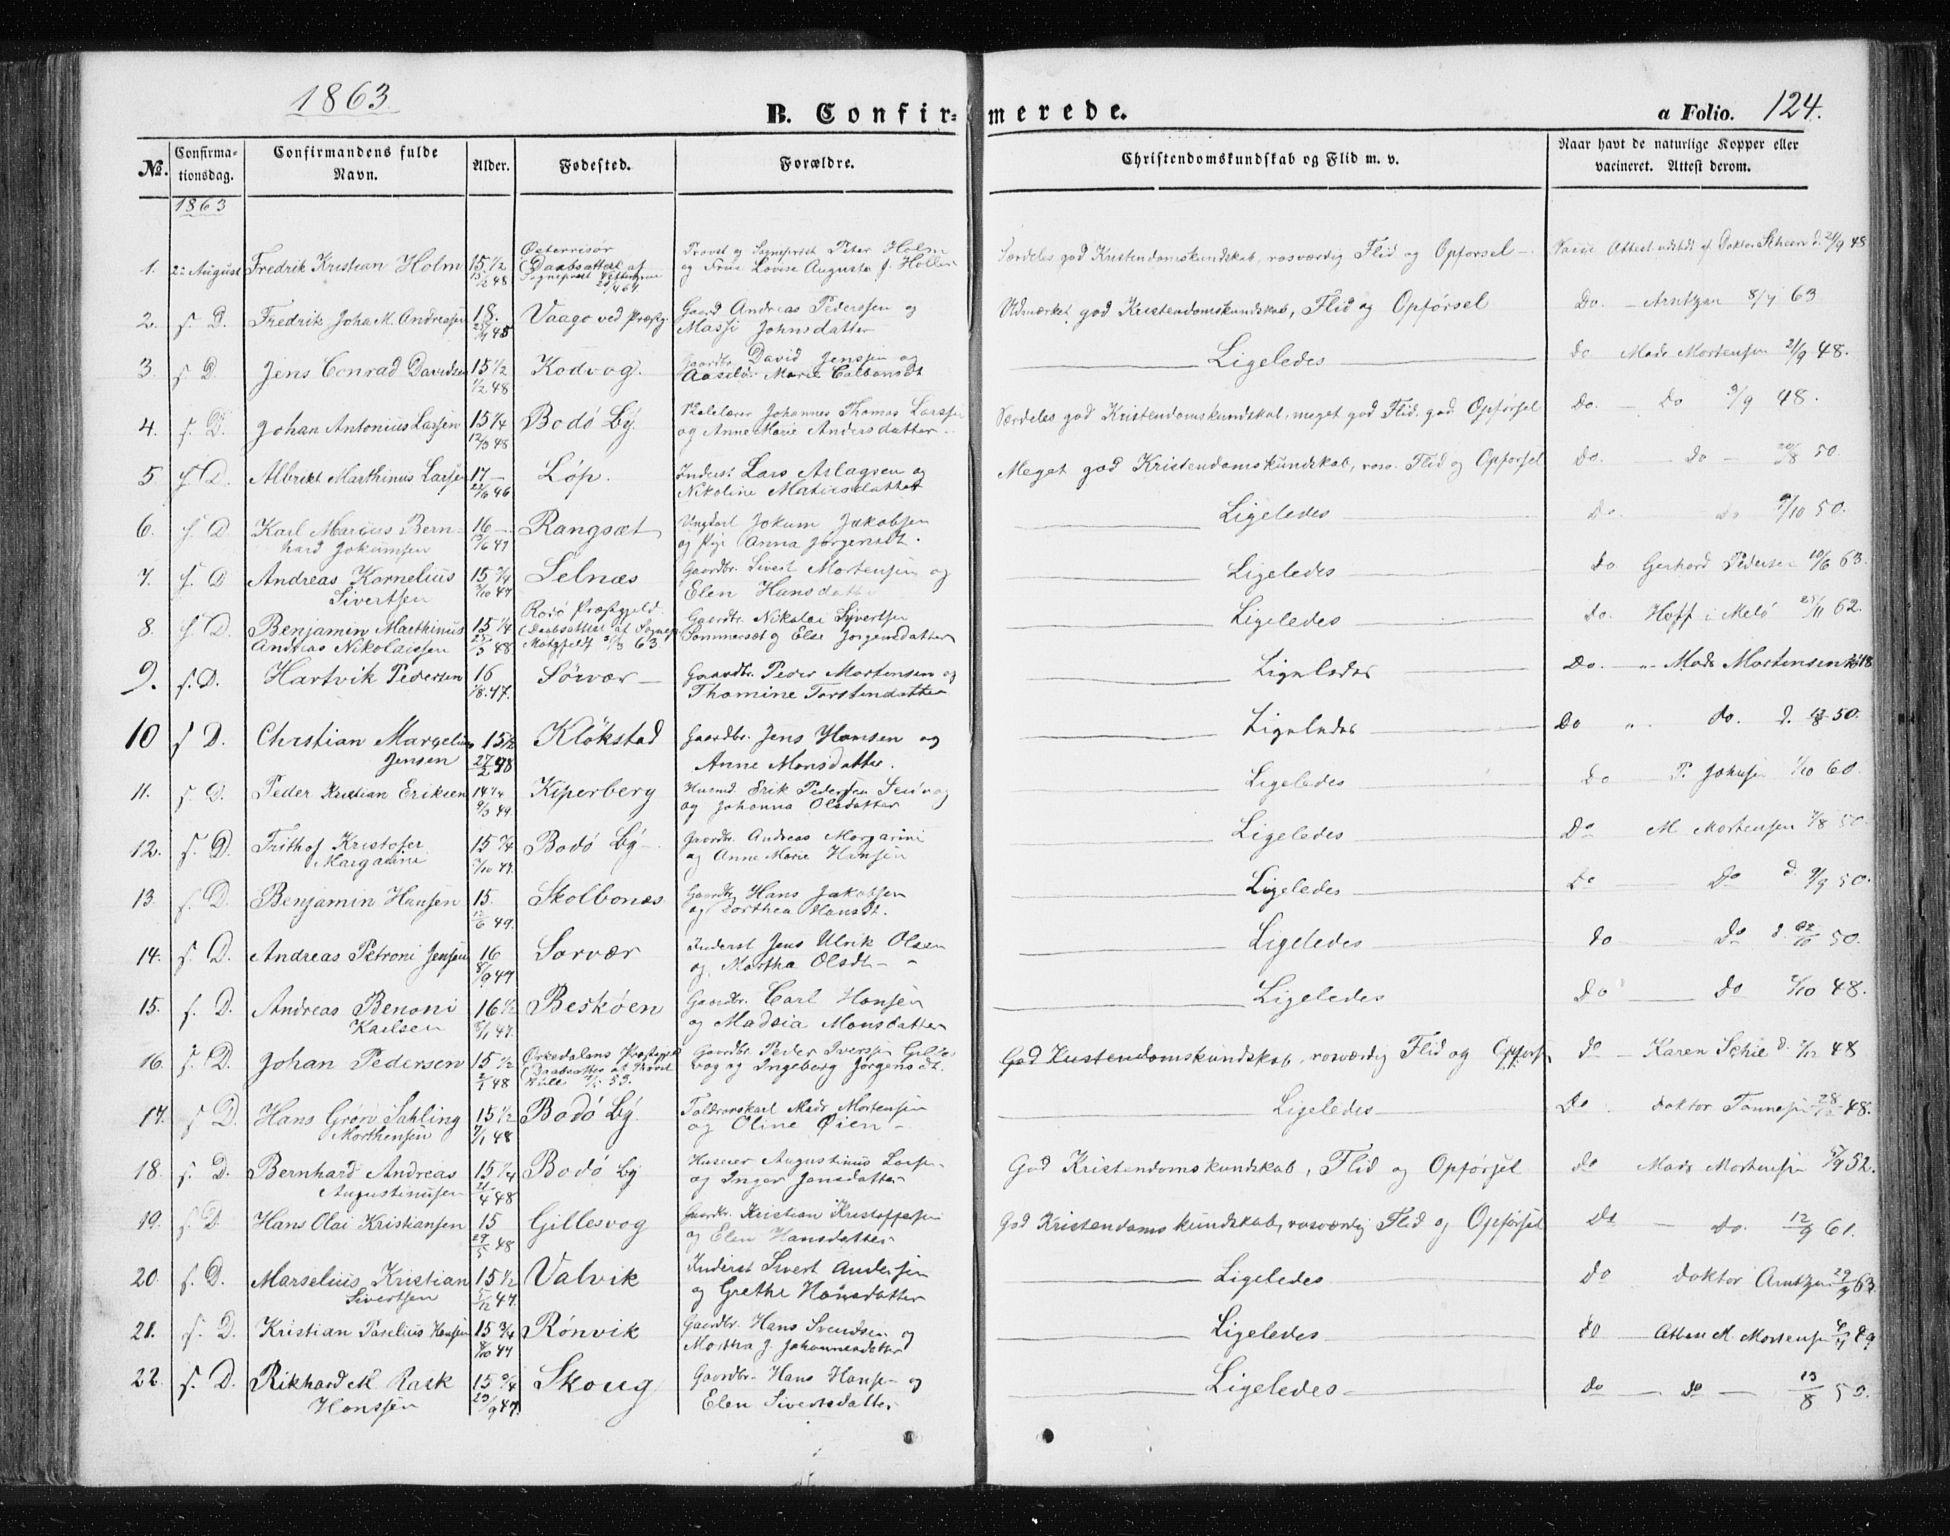 1863
B. Confirmerede.
a Folio. 124.
No. Confirmationsdag. Confirmandens fulde Navn. Alder. Fødested. Forældre. Christendomskundskab og Flid m. v. Naar havt de naturlige Kopper eller vacineret. Attest derom.
1863
1. 2den August Fredrik Kristian Holm 15 1/2 Østerrisør Provst og Sognepræst Peter Holm Særdeles god Kristendomskundskab, rosværdig Flid og Opførsel Attest udstedt af Doktor Scheen d. 21/9 48
(Daabsattest af og Frue Lovise Augusta f. Holler
Sognepræst
2. s. D. Fredrik Joha M. Andreassen 18. Vaagø ved Præstg. Gaard Andreas Pederssen og Udmærket god Kristendomskundskab, Flid og Opførsel Do. Arntzen 8/7 63
Massi Johnsdatter
3. s. D. Jens Conrad Davidsen 15 1/2 Kodvog. Gaardbr. David Jenssen og Ligeledes do Mads Mortensen 21/9 48.
1/2 48 Marie
4. s. D. Johan Antonius Larssen 15 1/4 Bodø By Johannes Thomas Larssen Særdeles god Kristendomskundskab, meget god Flid, god Opførsel Do. Do 9/9 48.
12/3 48 og Anne Marie Andersdatter
5 s. D. Albrikt Marthinus Larsen 17 Løp. Inderst Lars og Meget god Kristendomskundskab, rosv. Flid og Opførsel Do. do 50.
23/6 46 Nikoline
6. s. D Karl Marius Bern- 16 Rangsæt Ungkarl Jokum Jakobsen Ligeledes Do. Do 9/10 50.
hard Jokumsen 13/6 47 og Pige Anna Jørgensdt.
7. s. D Andreas Kornelius 15 3/4 Selnæs Gaardbr. Sivert Mortensen og Ligeledes do Gerhard Pedersen 10/6 63.
Sivertsen Elen Hansdatter
8. s. D Benjamin Marthinus 15 1/4 Rødø Præstgjeld. Gaardbr. Nikolai Syvertsen Ligeledes do. Hoff i Melø 25/11 62.
Andreas Nikolaissen 48 (Daabsattest af Sognep. Sommersæt og Else Jørgensdatter
63.
9. s. D. Hartvik Pedersen 16 Sörvær Gaardbr. Peder Mortensen og Ligeledes Do. Mads Mortensen
1/8. 47. Thomine Torstensdatter
10 s D. Christian Marcelius 15 1/2 Klökstad Gaardbr. Jens Hansen og Ligeledes Do do. d. 50.
Jensen 27/2 48 Anne Monsdatter.
11. s. D. Peder Kristian Eriksen 14 3/4 Kjperberg Husmd. Erik Pedersen Ligeledes do P. Johnsen 1/10 60.
9/3 49 og Johanna Olsdatter
12. s. D. Frithof Kristofer 15 3/4 Bodø By Gaardbr. Andreas Margarini Ligeledes Do M. Mortensen 50.
Margarini og Anne Marie Hansen
13. s. D. Benjamin Hansen 15. Skolbones Gaardbr. Hans Jakobsen Ligeledes Do Do d. 9/9 50.
12/6 49. og Dorthea Hansdt.
14. s. D. Andreas Petroni Jensen 16 Sorvær Inderst Jens Ulrik Olsen Ligeledes do Do d. 50.
8/9 47 og Martha Olsdt
15. s. D. Andreas Benoni 16 1/2 Beskøen Gaardbr. Carl Hansen Ligeledes Do Do 48.
Karlsen og Madsia Monsdatter
16. s. D. Johan Pedersen 15 1/2 Ørkedalens Præstgjeld Gaardbr. Peder Iversen Gilles- God Kristendomskundskab, rosværdig Flid og Opførs. do Karen Schie d. 48
2/1 48 (Daabsattest af Provst vog og Ingeborg Jørgensdt.
53.
17. s D. Hans Grøn Sahling 15 1/2 Bodø By. Mads Mortensen Ligeledes Do doktor Tønnesen 28/12 48.
Morthensen 48 og Oline Øien
18. s. D. Bernhard Andreas 15 1/4 Bodø By Huseier Augustinus Larsen God Kristendomskundskab, Flid og Opførsel do Mads Mortensen 52.
Augustinussen 21/4 48 og Inger Jensdatter
19. s. D Hans Olai Kristiansen 15 Gillesvog Gaardbr. Kristian Kristoffersen God Kristendomskundskab, rosværdig Flid og Opførsel do do. 12/9 61.
29/5 48 og Elen Hansdatter
20. s. D. Marselius Kristian 15 1/2 Valvik Inderst Sivert Andersen Ligeledes do doktor Arntzen 63
Sivertsen 5/12 47. og Grethe Hansdatter
21. s. D. Kristian Paselius Hansen 15 3/4 Rønvik Gaardbr. Hans Svendsen og Ligeledes do M. Mortensen
8/10 47 Martha J. Johannesdatter
22. s. D. Rikhard M Rask 15 3/4 Skoug Gaardbr. Hans Hansen og Ligeledes do do 13/8 50.
Hanssen 23/9 47. Elen Sivertsdatter